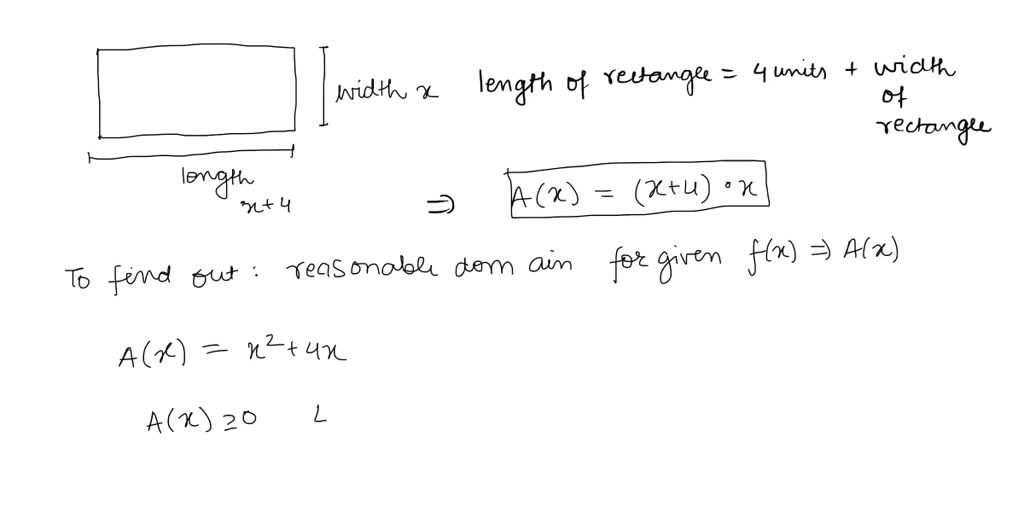 width x
length of rectangle = 4 units + width
of
rectangle
length
x+4
⇒ A(x) = (x+4) • x
To find out : reasonable domain for given f(x) ⇒ A(x)
A(x) = x² + 4x
A(x) ≥ 0